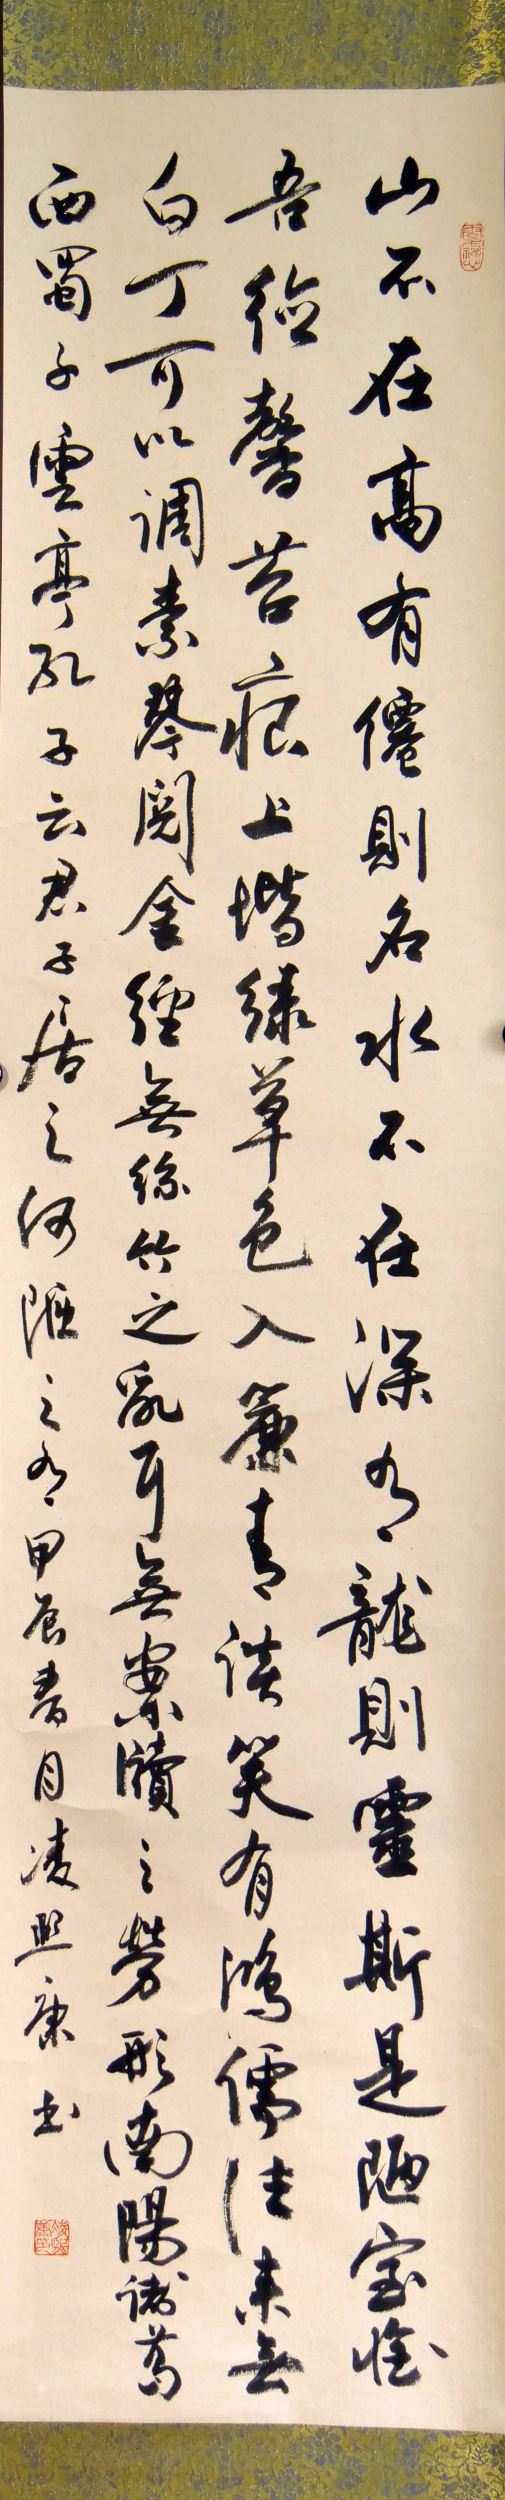 山不在高有僊則名水不在深有龍則靈斯是陋室惟
吾德馨苔痕上堦綠草色入簾青談笑有鴻儒往來無
白丁可以調素琴閱金經無絲竹之亂耳無案牘之勞形南陽諸葛
西蜀子雲亭孔子云君子居之何陋之有甲辰春月凌照康书